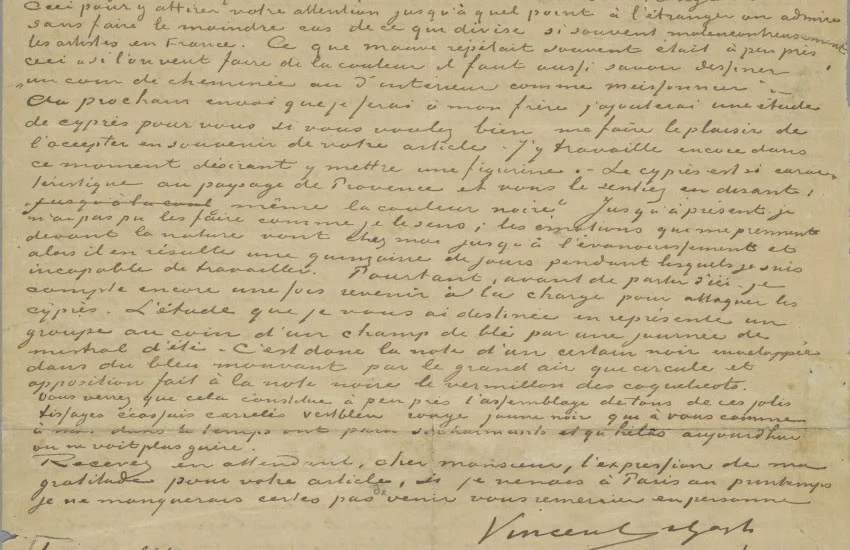 Ceci pour y attirer votre attention jusqu'à quel point à l'étranger on admire
sans faire le moindre cas de ce qui divise si souvent malencontreusement
les artistes en France. Ce que Mauve répétait souvent était à peu près
ceci "si l'on veut faire de la couleur il faut aussi savoir dessiner
un coin de cheminée ou d'intérieur comme Meissonier"
Au prochain envoi que je ferai à mon frère j'ajouterai une étude
de cyprès pour vous si vous voulez bien me faire le plaisir de
l'accepter en souvenir de votre article. J'y travaille encore dans
ce moment désirant y mettre une figurine. - Le cyprès est si carac-
téristique au paysage de Provence et vous le sentiez en disant:
"jusqu'à la coul même la couleur noire". Jusqu'à présent je
n'ai pas pu les faire comme je le sens; les émotions que me prennent
devant la nature vont chez moi jusqu'à l'évanouissement et
alors il en résulte une quinzaine de jours pendant lesquels je suis
incapable de travailler. Pourtant, avant de partir d'ici je
compte encore une fois revenir à la charge pour attaquer les
cyprès. L'étude que je vous ai destinée en représente un
groupe au coin d'un champ de blé par une journée de
mistral d'été - C'est donc la note d'un certain noir enveloppée
dans du bleu mouvant par le grand air qui circule et
opposition fait à la note noire le vermillon des coquelicots.
Vous verrez que cela constitue à peu près l'assemblage de tons de ces jolis
tissages écossais carrelés vert bleu rouge jaune noir qui à vous comme
à moi dans le temps ont paru si charmants et qu'hélas aujourd'hui
on ne voit plus guère.
Recevez en attendant, cher monsieur, l'expression de ma
gratitude pour votre article, si je venais à Paris au printemps
je ne manquerais certes pas venir vous remercier en personne
Vincent v Gogh